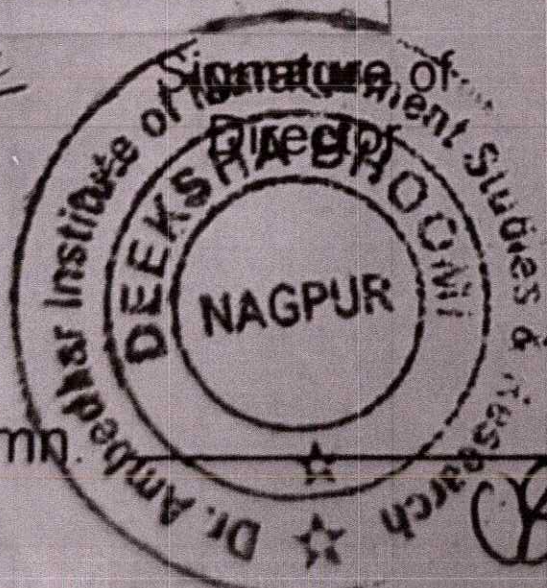 Signature of
Director
Dr. Ambedkar Institute of Management Studies & Research
DEEKSHA BHOOMI
NAGPUR
mn.